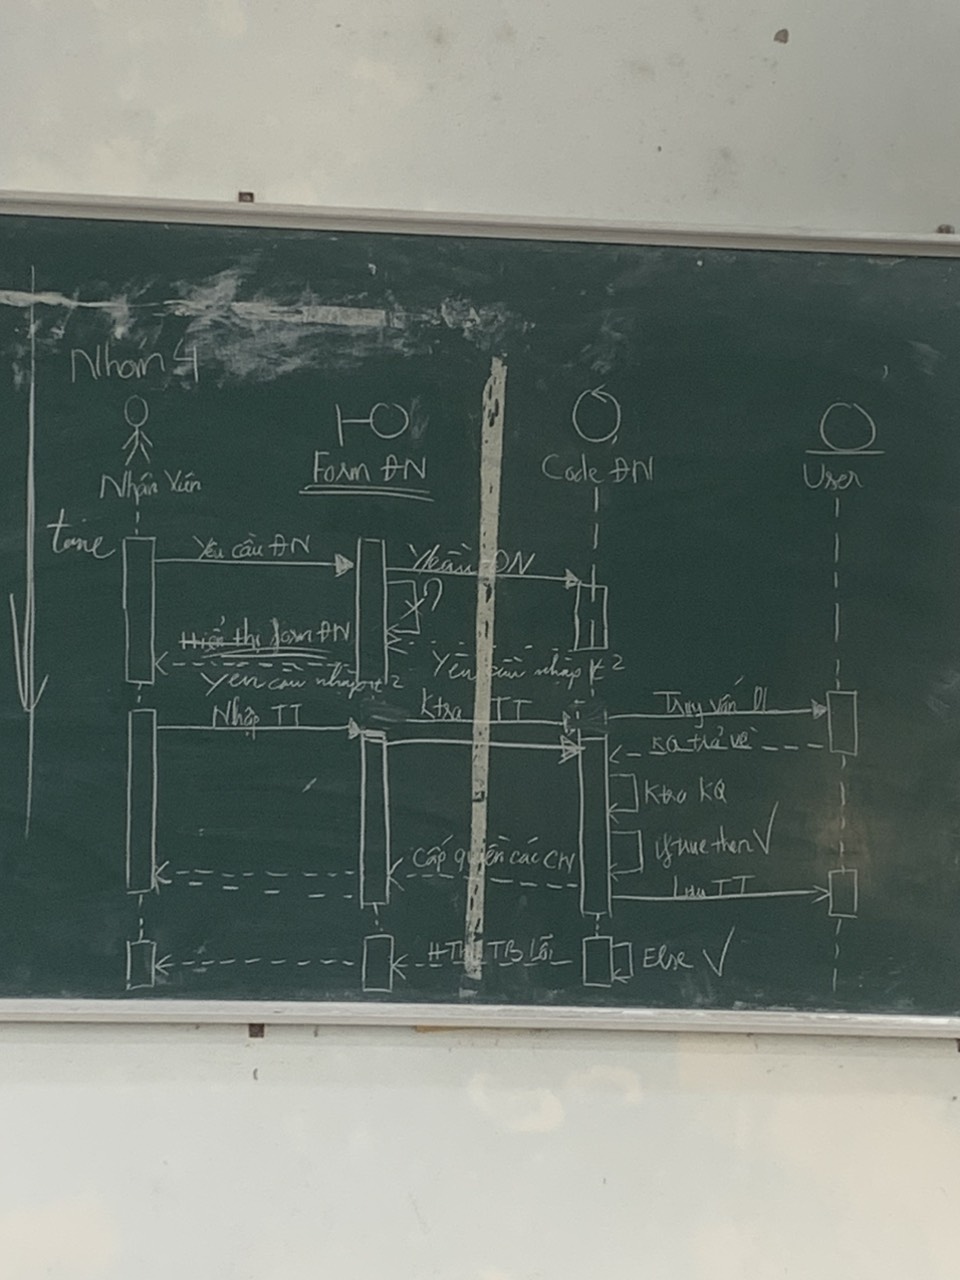 Nhóm 4
Nhân Viên
Form ĐN
Code ĐN
User
time
Yêu cầu ĐN
Ycầu ĐN
?
Hiển thị form ĐN
Yêu cầu nhập
Yêu cầu nhập
Nhập TT
Ktra TT
Truy vấn DL
KQ trả về
Ktra KQ
If true then V
Cấp quyền các CN
Lưu TT
TB Lỗi
Else V